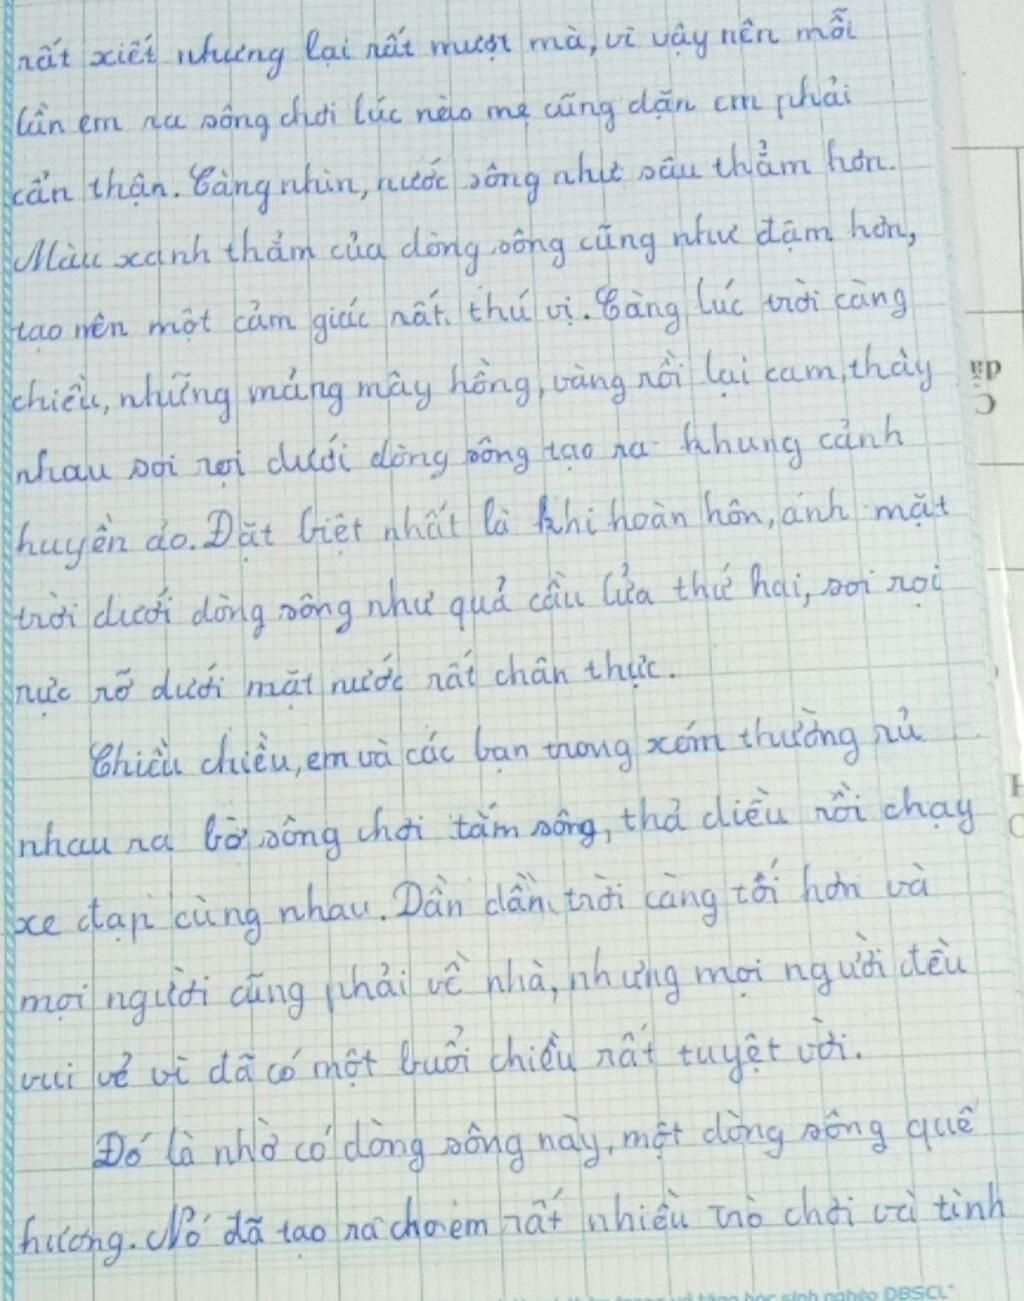 rất xiết nhưng lại rất mượt mà, vì vậy nên mỗi
lần em ra sông chơi lúc nào mẹ cũng dặn em phải
cẩn thận. Càng nhìn, nước sông như sâu thẳm hơn.
Màu xanh thẳm của dòng sông cũng như đậm hơn,
tạo nên một cảm giác rất thú vị. Càng lúc trời càng
chiều, những mảng mây hồng, vàng rồi lại cam, thay
nhau soi rọi dưới dòng sông tạo ra khung cảnh
huyền ảo. Đặt biệt nhất là khi hoàn hôn, ánh mặt
trời dưới dòng sông như quả cầu lửa thứ hai, soi rọi
rực rỡ dưới mặt nước rất chân thực.
Chiều chiều, em và các bạn trong xóm thường rủ
nhau ra bờ sông chơi tắm sông, thả diều rồi chạy
xe đạp cùng nhau. Dần dần, trời càng tối hơn và
mọi người cũng phải về nhà, nhưng mọi người đều
vui vẻ vì đã có một buổi chiều rất tuyệt vời.
Đó là nhờ có dòng sông này, một dòng sông quê
hương. Nó đã tạo ra cho em rất nhiều trò chơi và tình
học sinh nghèo ĐBSCL"